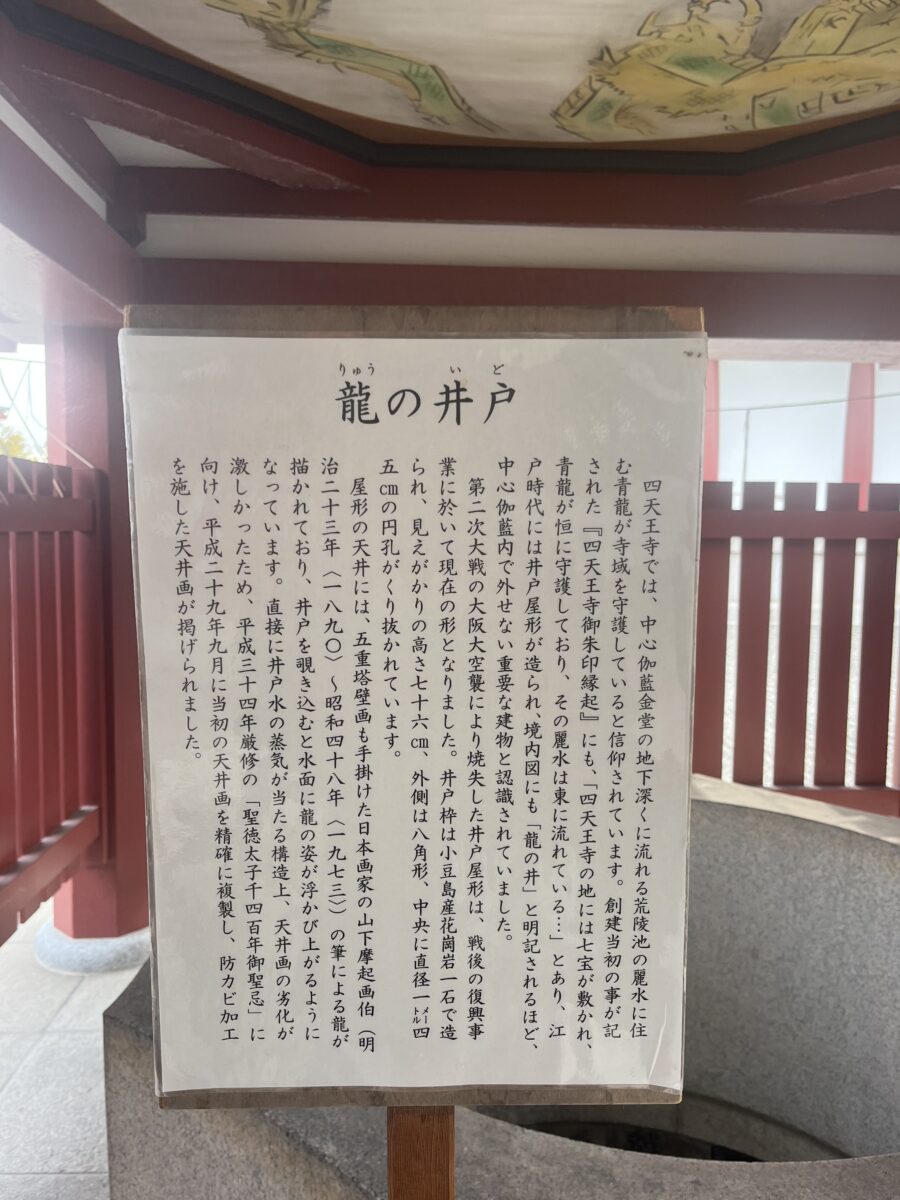 りゅう　いど
龍の井戸
四天王寺では、中心伽藍金堂の地下深くに流れる荒陵池の麗水に住
む青龍が寺域を守護していると信仰されています。創建当初の事が記
された『四天王寺御朱印縁起』にも、「四天王寺の地には七宝が敷かれ、
青龍が恒に守護しており、その麗水は東に流れている…」とあり、江
戸時代には井戸屋形が造られ、境内図にも「龍の井」と明記されるほど、
中心伽藍内で外せない重要な建物と認識されていました。
第二次大戦の大阪大空襲により焼失した井戸屋形は、戦後の復興事
業に於いて現在の形となりました。井戸枠は小豆島産花崗岩一石で造
られ、見えがかりの高さ七十六㎝、外側は八角形、中央に直径一㍍四
五㎝の円孔がくり抜かれています。
屋形の天井には、五重塔壁画も手掛けた日本画家の山下摩起画伯（明
治二十三年〈一八九〇〉～昭和四十八年〈一九七三〉）の筆による龍が
描かれており、井戸を覗き込むと水面に龍の姿が浮かび上がるように
なっています。直接に井戸水の蒸気が当たる構造上、天井画の劣化が
激しかったため、平成三十四年厳修の「聖徳太子千四百年御聖忌」に
向け、平成二十九年九月に当初の天井画を精確に複製し、防カビ加工
を施した天井画が掲げられました。